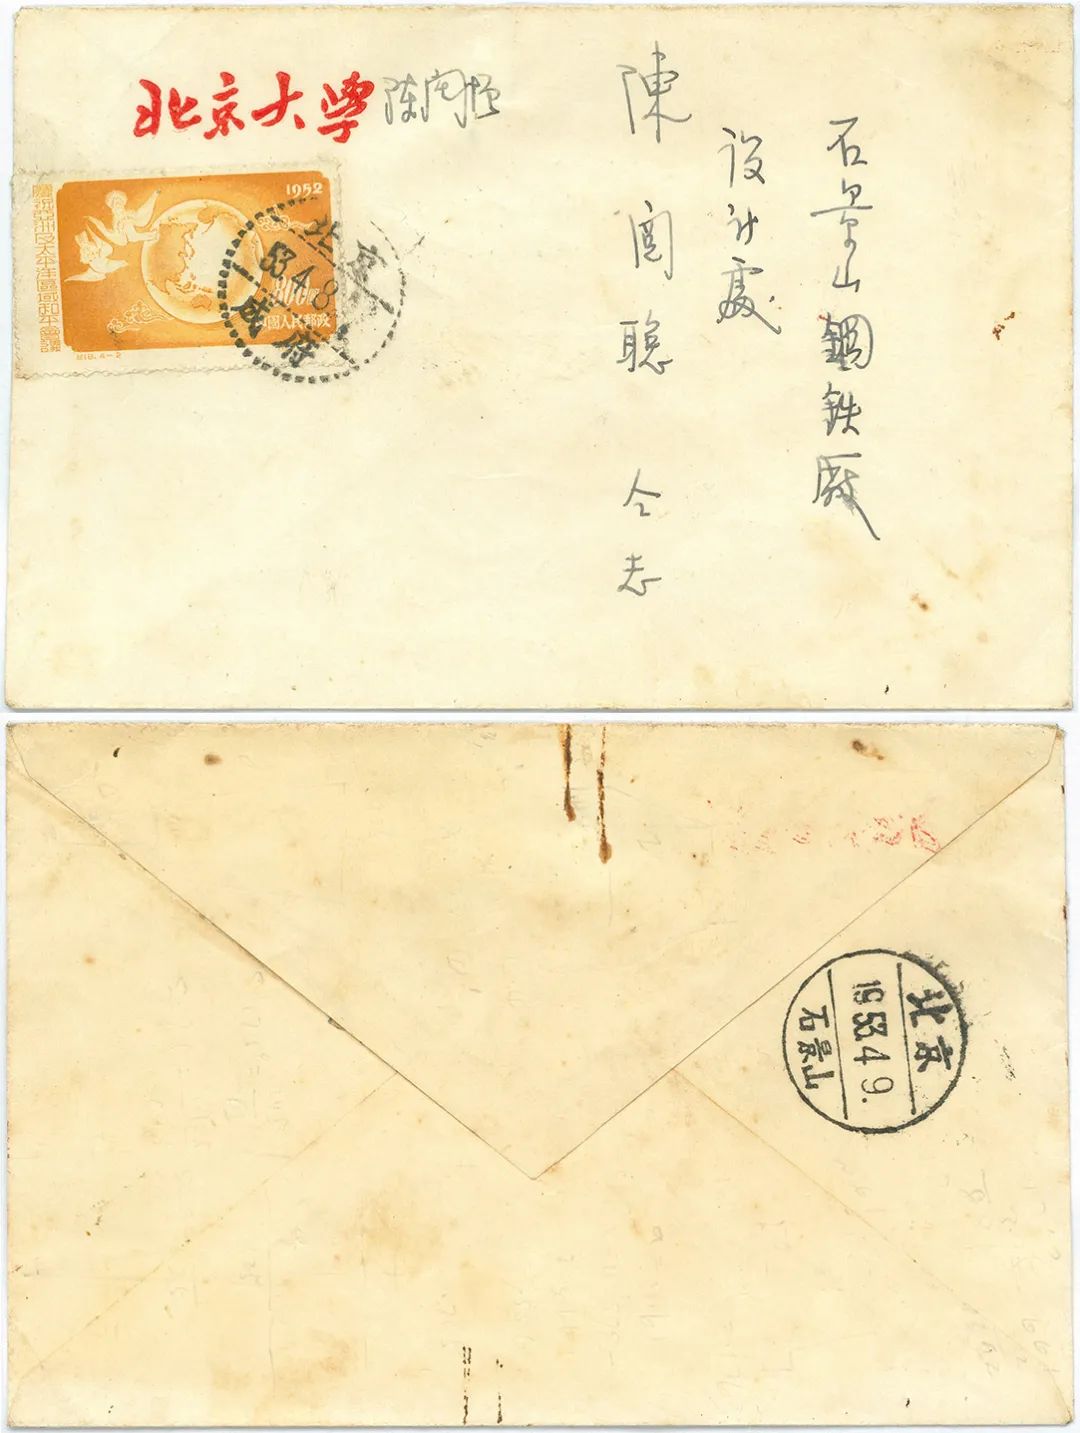 石景山鋼鉄廠
设计處
陳閏聪仝志
北京大學
陈闰
慶祝亞洲及太平洋區域和平會議
1952
800圓
中國人民郵政
紀18.4-2
北京
53.4.8
成府
北京
1953.4.9.
石景山